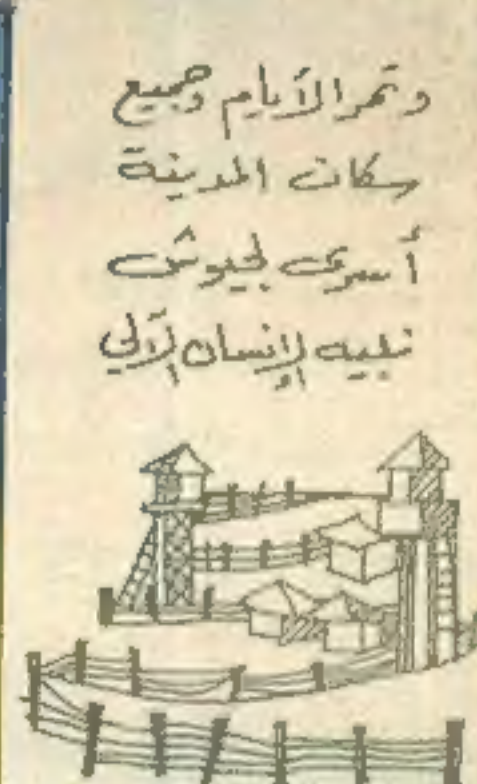 وتمر الأيام وجميع
سكان المدينة
أسرى لجيوش
نبيه الإنسان الآلي